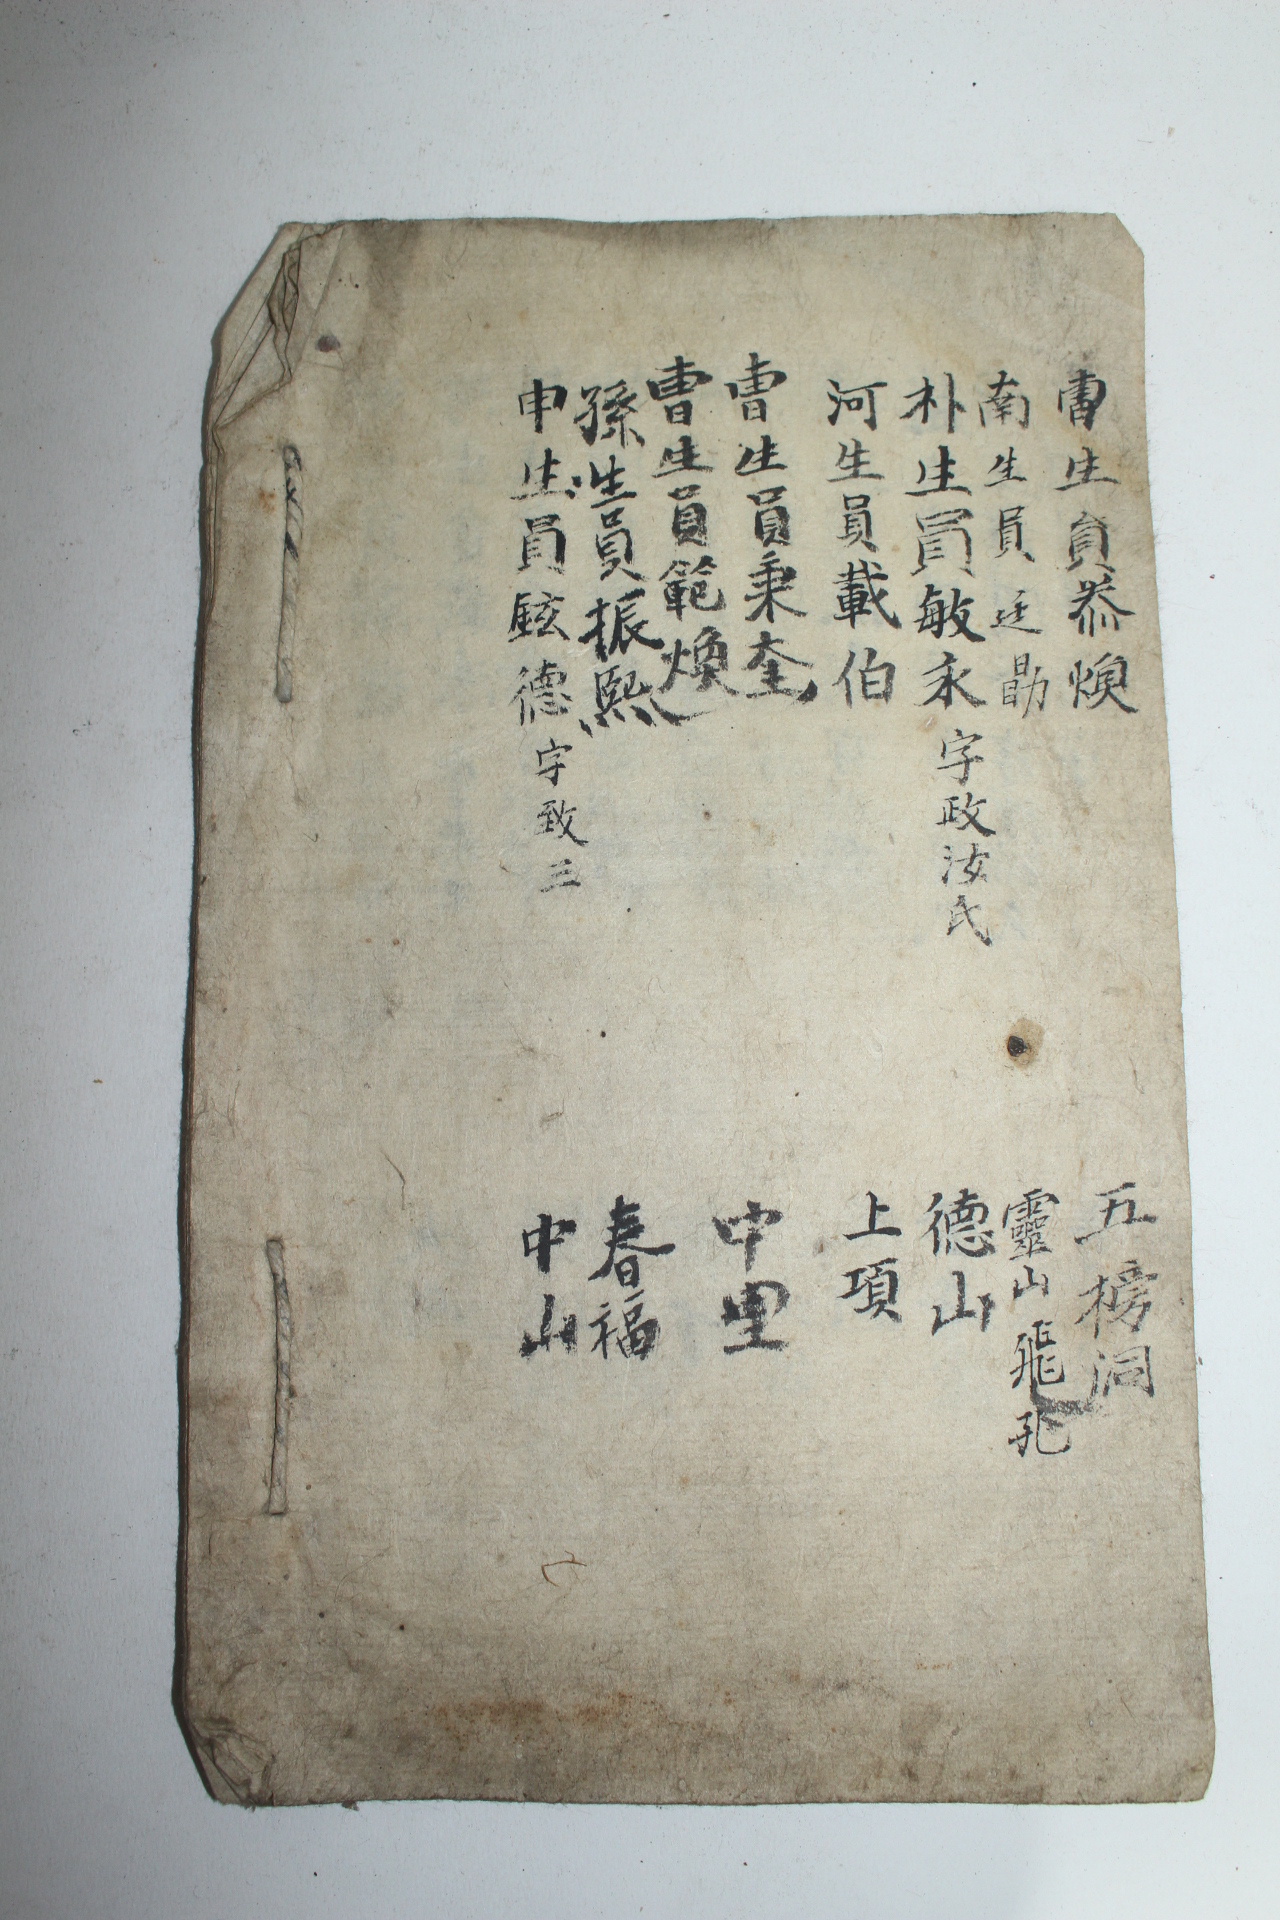 曺生員恭煥 五榜洞
南生員廷勖 靈山飛孔
朴生員敏永字政汝氏 德山
河生員載伯 上項
曺生員秉奎 中里
曺生員範煥
孫生員振熙 春福
申生員鉉德字致三 中山